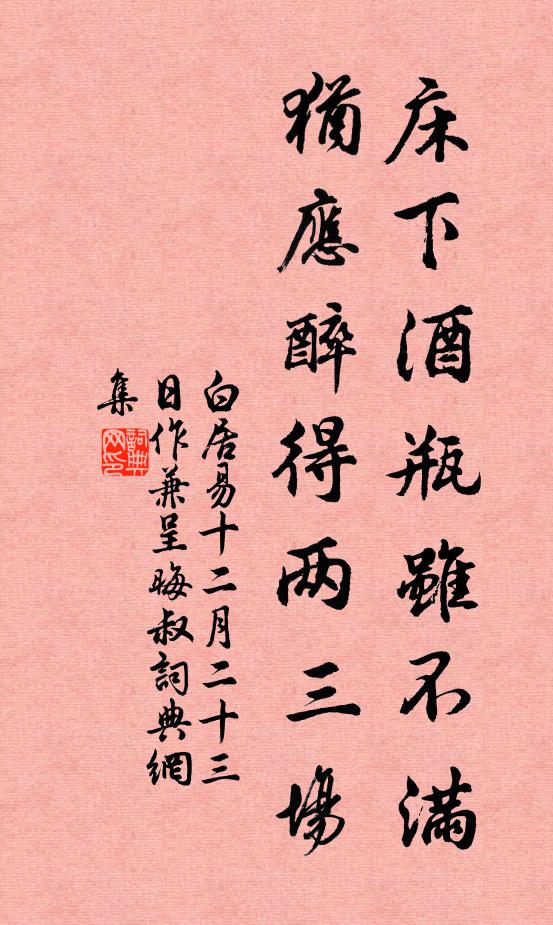 床下酒瓶雖不滿
猶應醉得两三場
白居易十二月二十三
日作兼呈晦叔詞典網
集
詞典
网印